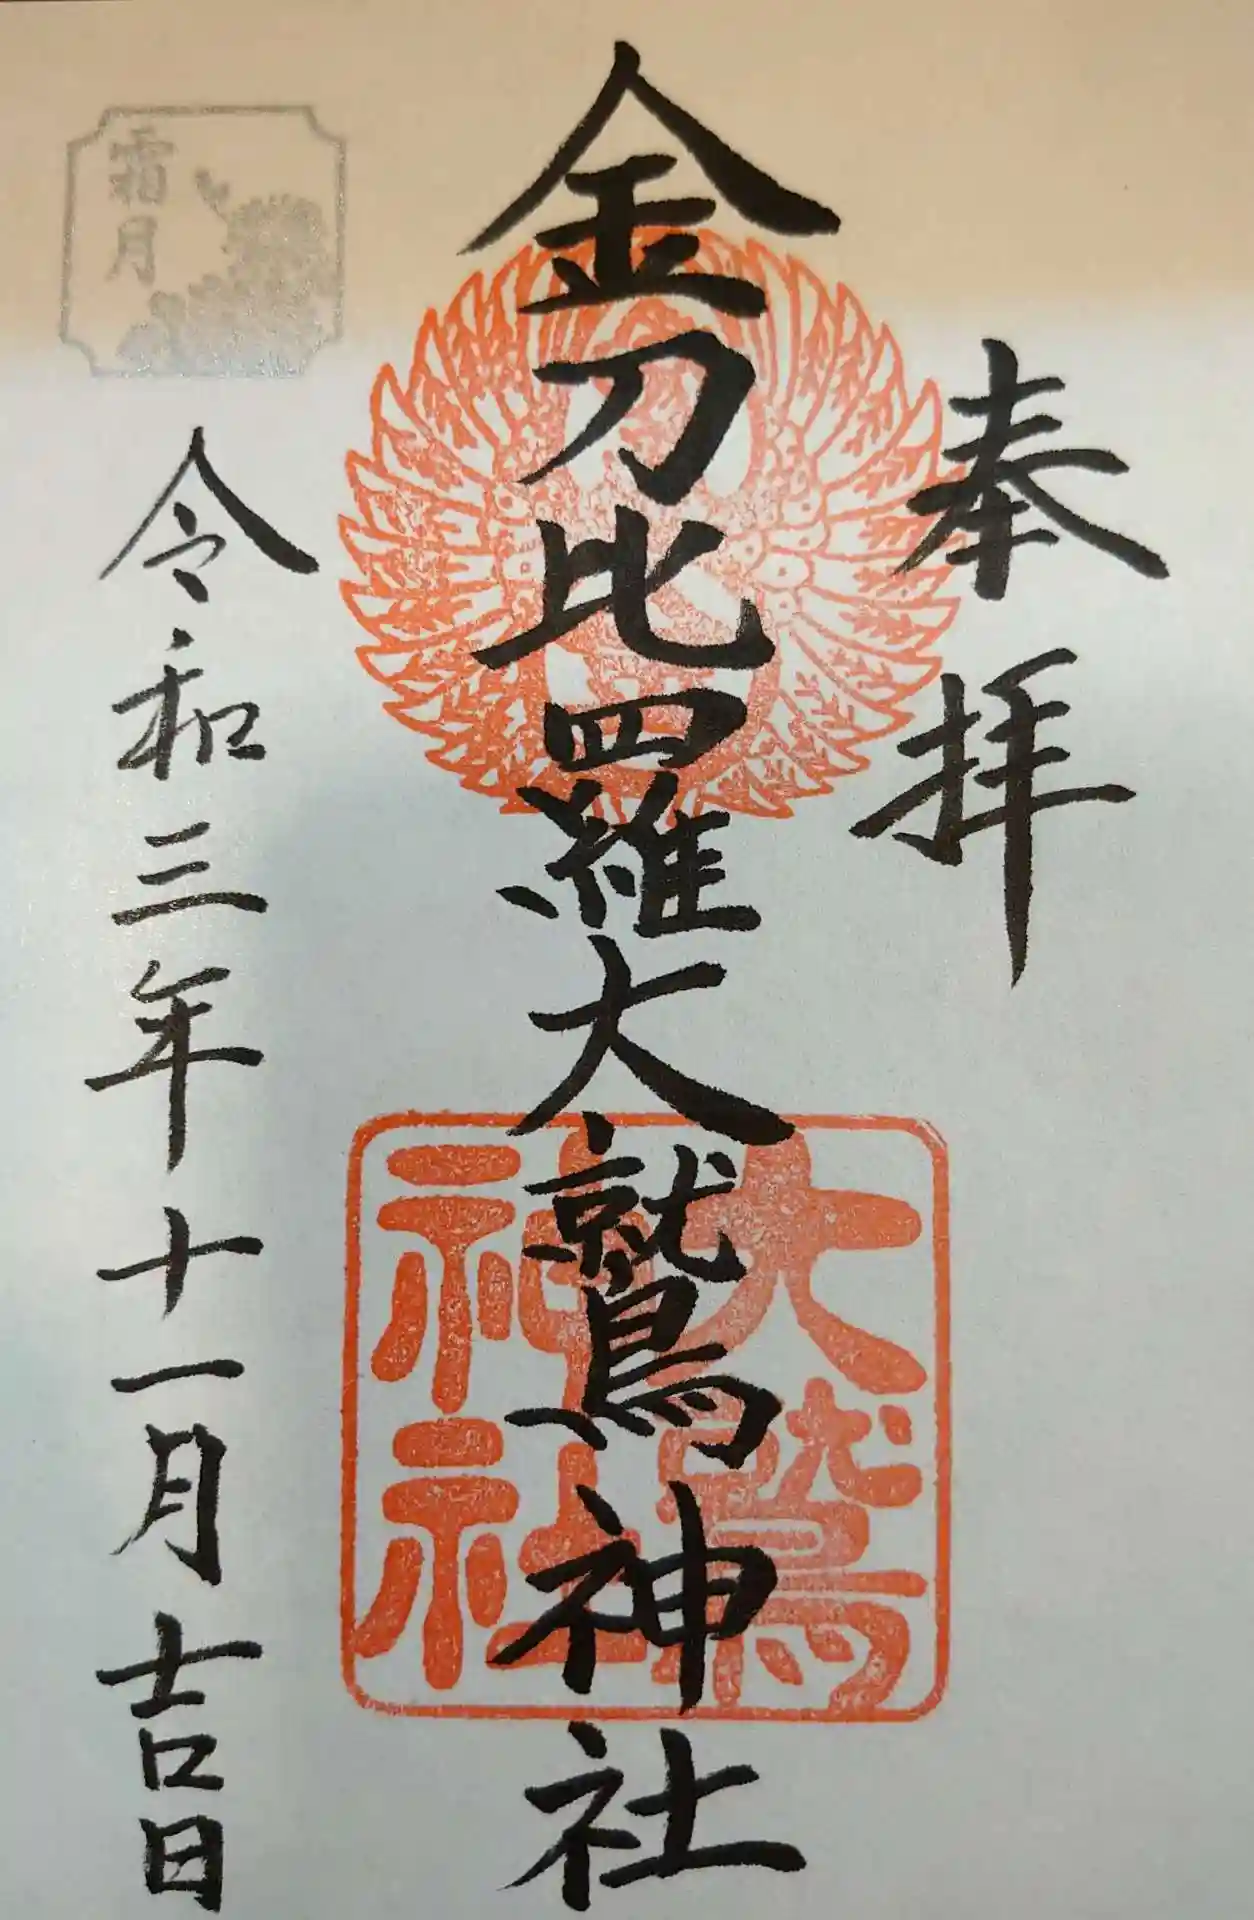 奉拝
金刀比羅大鷲神社
大鷲
神社
霜月
令和三年十一月吉日